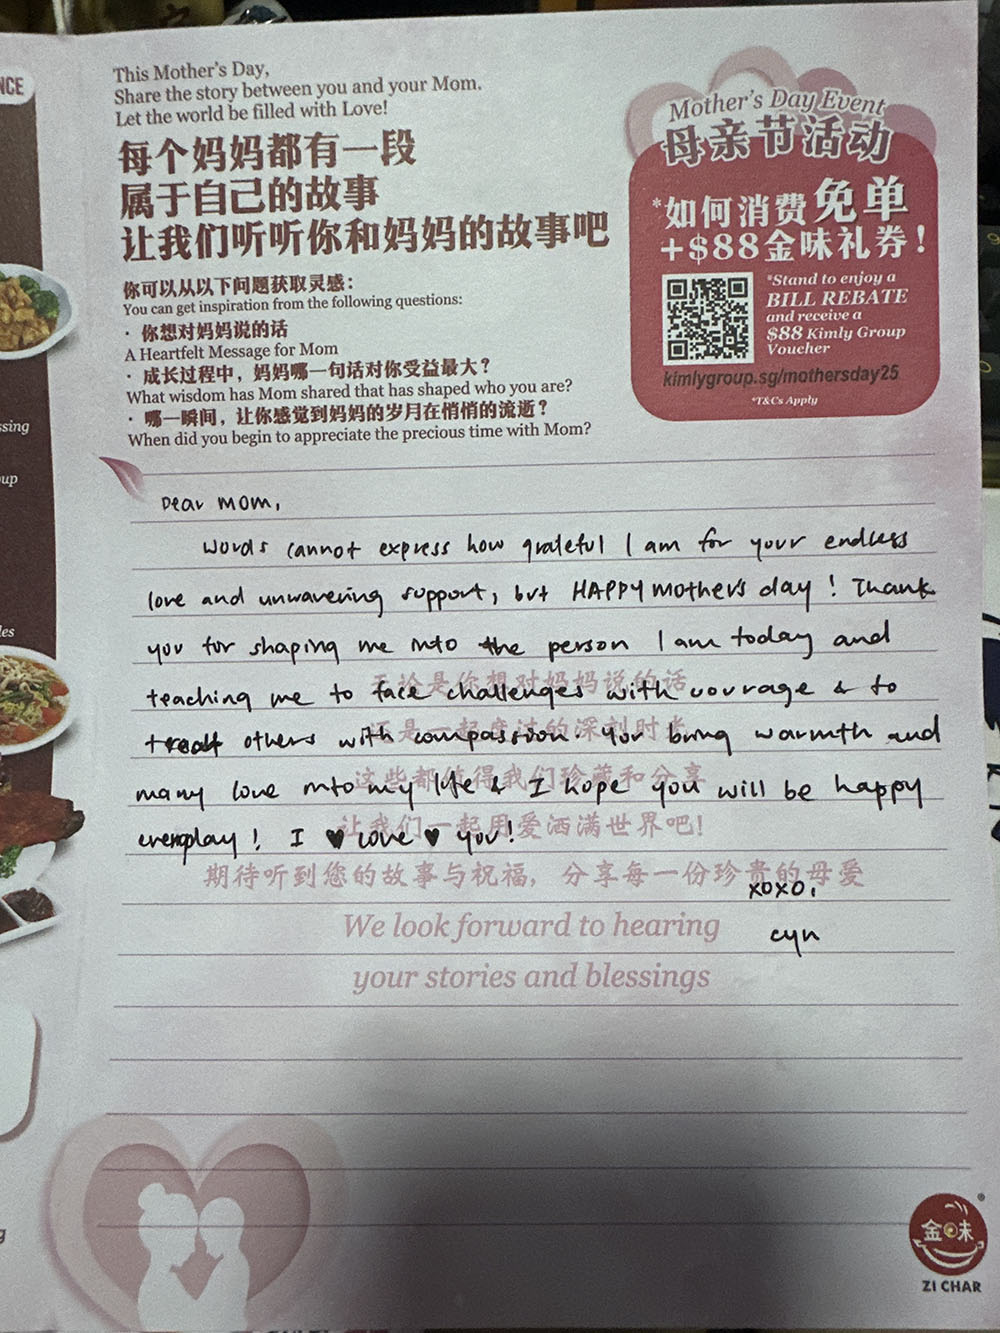 NCE
This Mother's Day,
Share the story between you and your Mom.
Let the world be filled with Love!
每个妈妈都有一段
属于自己的故事
让我们听听你和妈妈的故事吧
你可以从以下问题获取灵感：
You can get inspiration from the following questions:
· 你想对妈妈说的话
A Heartfelt Message for Mom
· 成长过程中，妈妈哪一句话对你受益最大？
What wisdom has Mom shared that has shaped who you are?
· 哪一瞬间，让你感觉到妈妈的岁月在悄悄的流逝？
When did you begin to appreciate the precious time with Mom?
Mother's Day Event
母亲节活动
*如何消费免单
+$88金味礼券！
*Stand to enjoy a
BILL REBATE
and receive a
$88 Kimly Group
Voucher
kimlygroup.sg/mothersday25
*T&Cs Apply
Dear Mom,
Words cannot express how grateful I am for your endless
love and unwavering support, but HAPPY mother's day! Thank
you for shaping me into the person I am today and
teaching me to face challenges with courage & to
treat others with compassion. You bring warmth and
many love into my life & I hope you will be happy
everyday! I ♥ love ♥ you!
xoxo,
cyn
无论是你想对妈妈说的话
还是一起度过的深刻时光
这些都值得我们珍藏和分享
让我们一起用爱洒满世界吧!
期待听到您的故事与祝福，分享每一份珍贵的母爱
We look forward to hearing
your stories and blessings
金味
®
ZI CHAR